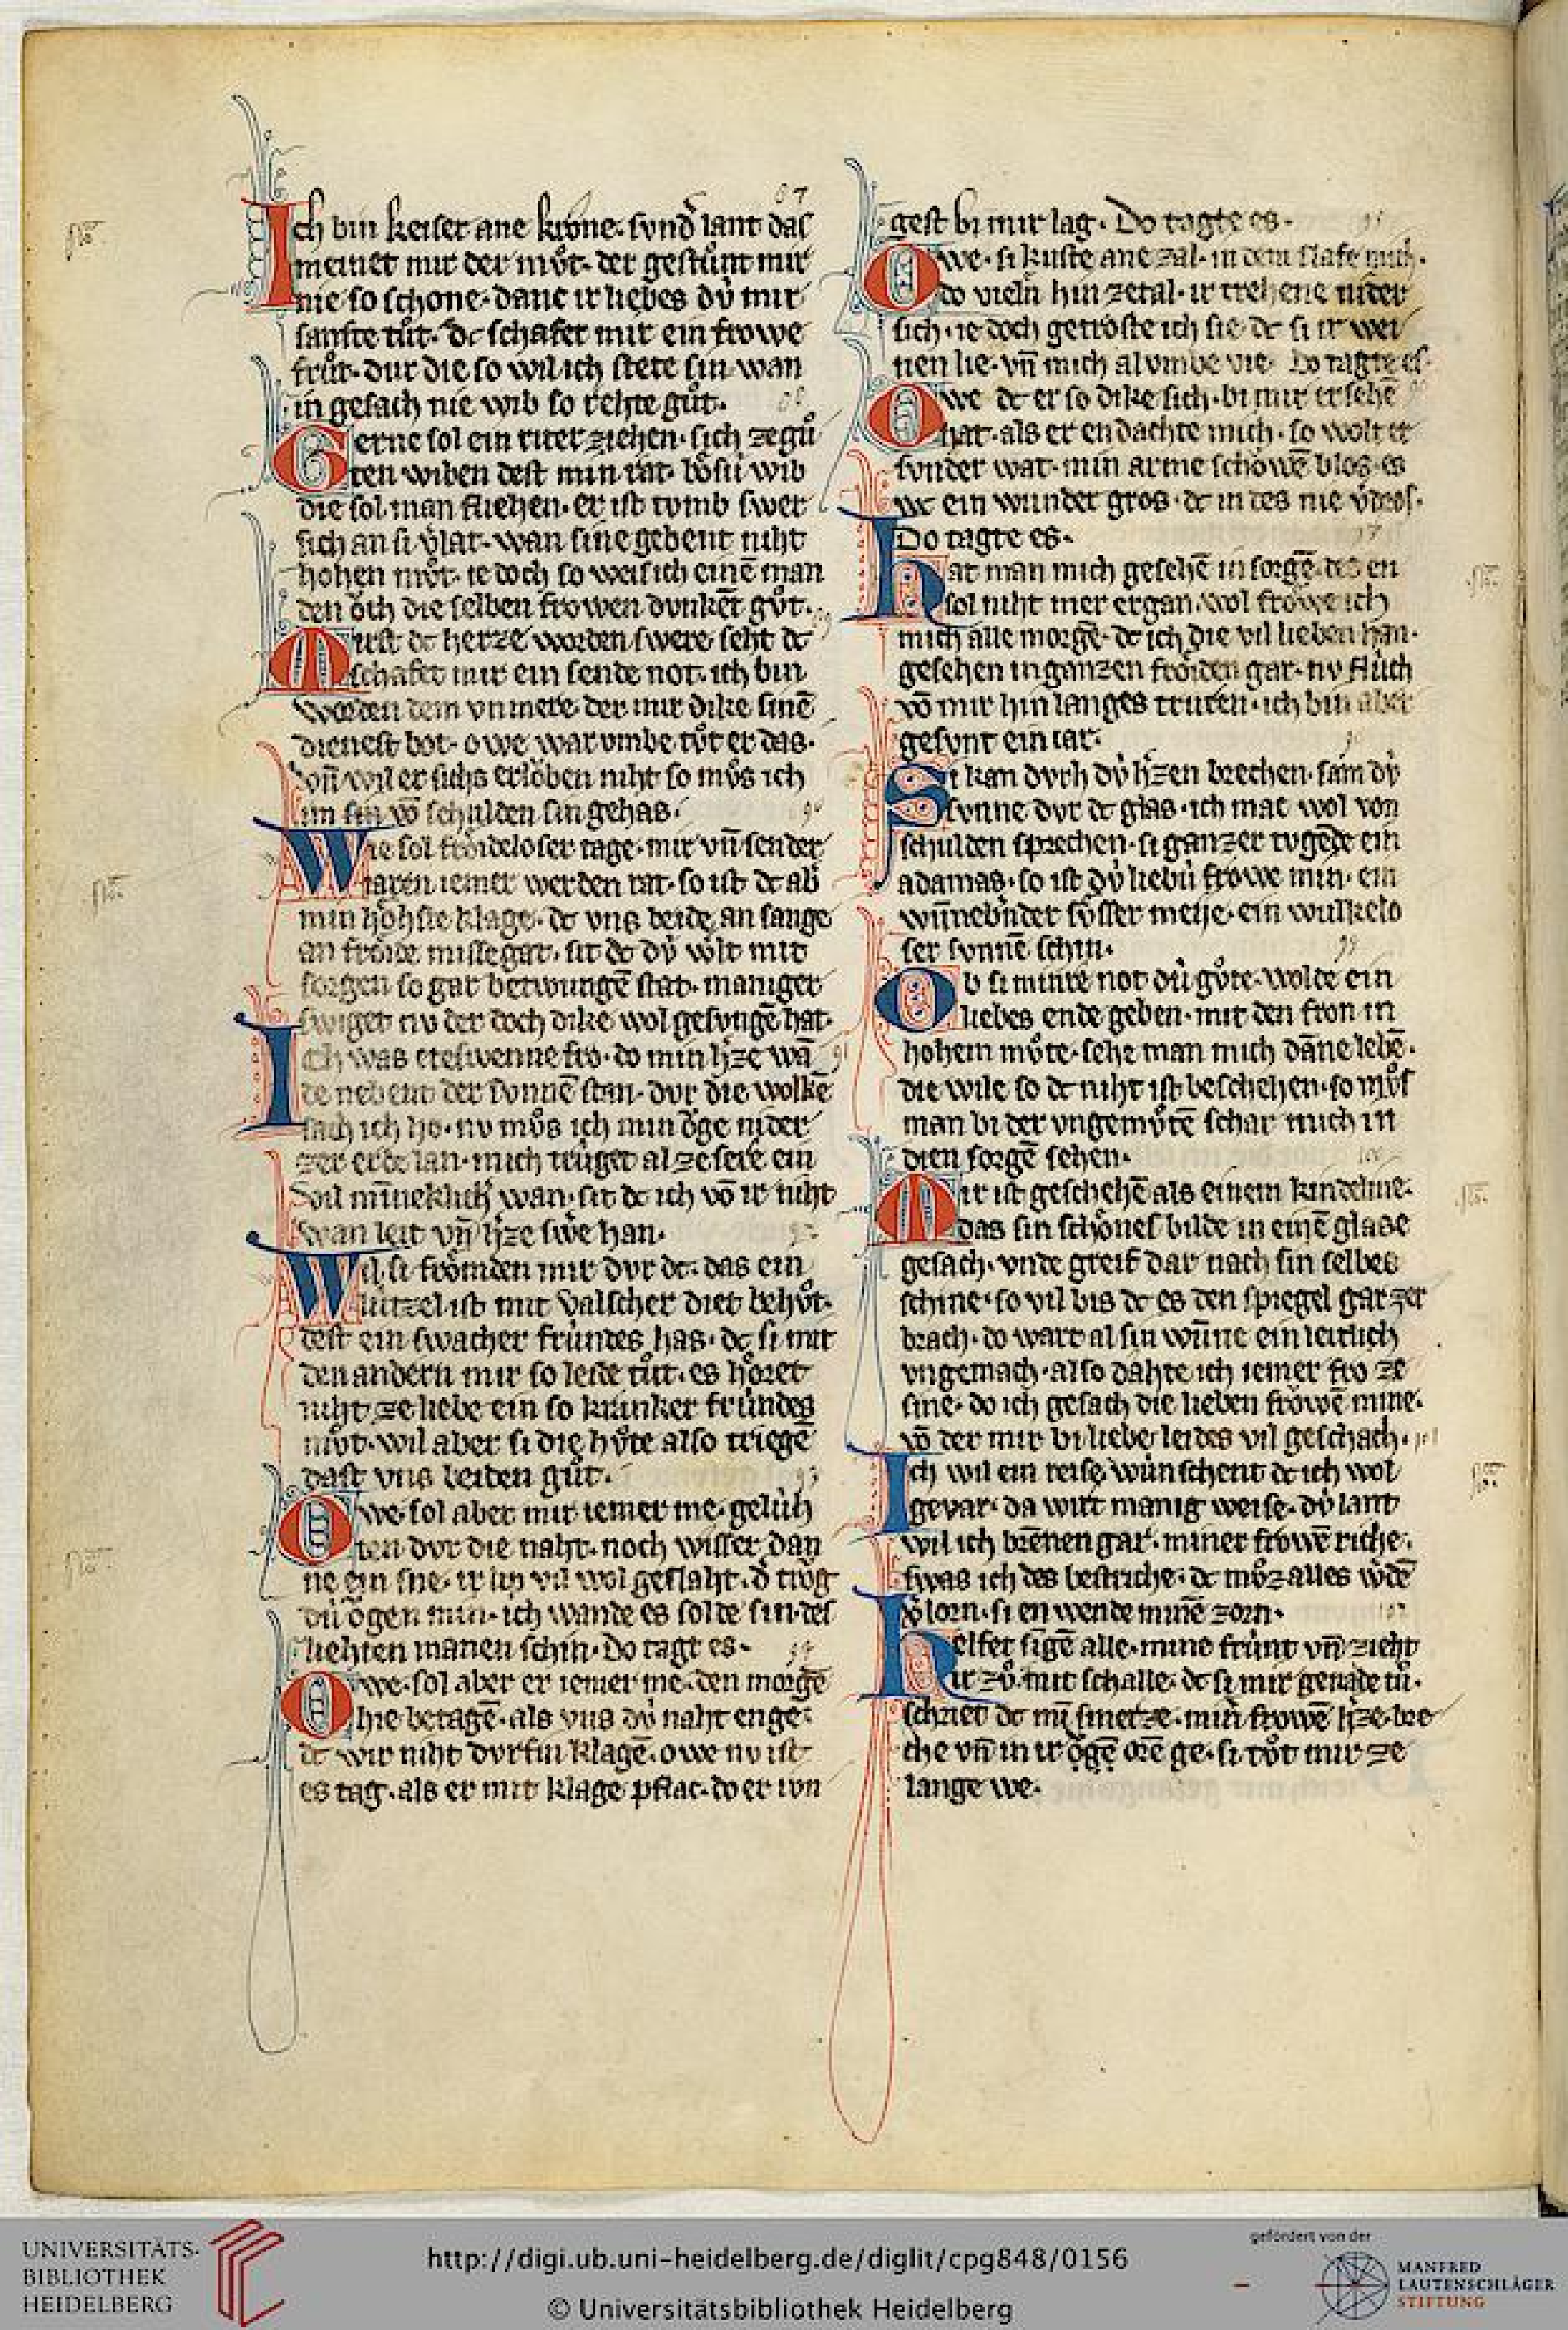 87
Ich bin keiſer ane krone. ſvnd̾ lant daſ
meinet mir der mv̊t. der geſtv̊nt mir
nie ſo ſchone. danc ir liebes dv̍ mir
ſanfte tůt. dc ſchaffet mir ein frowe
frůt. dur die ſo wil ich ſtete ſin wan
in geſach nie wib ſo rehte gůt. 88
Gerne ſol ein riter ziehen. ſich ze gů
ten wiben deſt min rat. bo̍ſu̍ wib
die ſol man fliehen. er iſt tvmb ſwer
ſich an ſi v̾lat. wan ſine gebent niht
hohen mv̊t. ie doch ſo weiſ ich einē man
den o̍ch die ſelben frowen dvnkēt gůt.
Mirſt dc herze worden ſwere. ſeht dc
ſchaffet mir ein ſende not. ich bin
worden dem vnmere. der mir dike ſinē
dieneſt bot. owe war vmbe tůt er das.
vn̄ wil er ſichs erlo̍ben niht ſo mv̊s ich
im ſin vō ſchulden ſin gehas. 90
Wie ſol fro̍ideloſer tage. mir vn̄ ſender
iaren iemer werden rat. ſo iſt dc ab̾
min ho̍hſte klage. dc vns beide an ſange
an fro̍ide miſſegat. ſit dc dv̍ w̾lt mit
ſorgen ſo gar betwungē ſtat. maniger
ſwiget nv der doch dike wol geſvngē hat.
Ich was eteſwenne fro. do min h̾ze wā 91
de nebent der ſvnnē ſtan. dvr die wolkē
ſach ich ho. nv mv̊s ich min o̍ge nider
zer erde lan. mich tru̍get al ze ſere ein
vil mīneklich̾ wan. ſit dc ich vō ir niht
wan leit vn̄ h̾ze ſw̾e han. 92
Wil ſi fro̍mden mir dvr dc. das ein
lu̍tzel iſt mit valſcher diet behv̊t.
deſt ein ſwacher fru̍ndes has. dc ſi mit
den andern mir ſo leide tůt. es ho̍ret
niht ze liebe ein ſo kranker fru̍ndes
mv̊t. wil aber ſi die hv̊te alſo triegē
daſt vns beiden gůt. 93
Owe. ſol aber mir iemer me. gelu̍h
ten dvr die naht. noch wiſſer dan
ne ein ſne. ir lip vil wol geſlaht. d̾ trǒg
du̍ o̍gen min. ich wande es ſolde ſin. deſ
liehten manen ſchin. Do tagt es. 94
Owe. ſol aber er iemer me. den morgē
hie betagē. als vns dv̍ naht enge.
dc wir niht dvrfin klagē. owe nv iſt
es tag. als er mit klage pflac. do er ivn
geſt bi mir lag. Do tagte es. 95
Owe. ſi kuſte ane zal. in dem ſlafe mich.
do vieln hin zetal. ir trehene nider
ſich. ie doch getroſte ich ſie. dc ſi ir wei
nen lie. vn̄ mich al vmbe vie. Do tagte es.
Owe dc er ſo dike ſich. bi mir erſehē
hat. als er endachte mich. ſo wolt er
ſvnder wat. min arme ſcho̍wē blos. es
wc ein wunder gros. dc in des nie v̾dros.
Do tagte es. 97
Hat man mich geſehē in ſorgē. des en
ſol niht mer ergan. wol fro̍we ich
mich alle morgē. dc ich die vil lieben han.
geſehen in ganzen fro̍iden gar. nv flu̍ch
vō mir hin langes truren. ich bin aber
geſvnt ein iar.
Si kan dvrh dv̍ h̾zen brechen. ſam dv̍
ſvnne dvr dc glas. ich mac wol von
ſchulden ſprechen. ſi ganzer tvgēde ein
adamas. ſo iſt dv̍ liebu̍ frowe min. ein
wn̄neb̾nder ſv̊ſſer meije. ein wulkelo
ſer ſvnnē ſchin. 99
Ob ſi minre not du̍ gůte. wolde ein
liebes ende geben. mit den fron in
hohem mv̊te. ſehe man mich dāne lebē.
die wile ſo dc niht iſt beſchehen. ſo mv̊ſ
man bi der vngemv̊tē ſchar mich in
dien ſorgē ſehen. 100
Mir iſt geſchehē als einem kindeline.
das ſin ſcho̍neſ bilde in einē glaſe
geſach. vnde greif dar nach ſin ſelbes
ſchine. ſo vil bis dc es den ſpiegel gar zer
brach. do wart al ſin wu̍nne ein leitlich
vngemach. alſo dahte ich iemer fro ze
ſine. do ich geſach die lieben frowē mine.
vō der mir bi liebe leides vil geſchach. 101
Ich wil ein reiſe. wu̍nſchent dc ich wol
gevar. da wirt manig weiſe. dv̍ lant
wil ich brēnen gar. miner frowē riche.
ſwas ich des beſtriche. dc mv̊z alles w̾dē
v̾lorn. ſi en wende minē zorn. 102
Helfet ſigē alle. mine fru̍nt vn̄ zieht
ir zů. mit ſchalle. dc ſi mir genade tů.
ſchriet dc mī ſmerze. min̾ frowē h̾ze bre
che vn̄ in ir o̍gē orē ge. ſi tůt mir ze
lange we.
UNIVERSITÄTS-
BIBLIOTHEK
HEIDELBERG
http://digi.ub.uni-heidelberg.de/diglit/cpg848/0156
© Universitätsbibliothek Heidelberg
gefördert von der
MANFRED
LAUTENSCHLÄGER
STIFTUNG